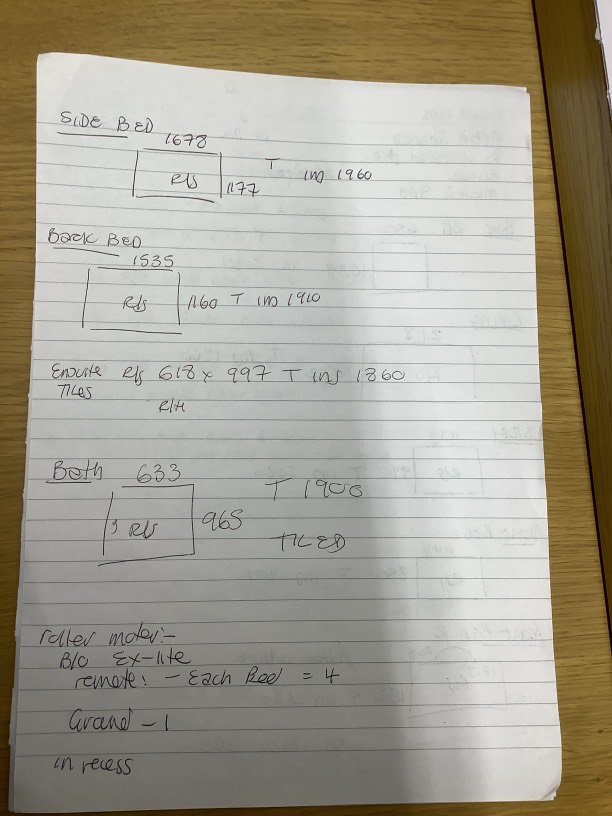 SIDE BED
1678
R/S 1177 T ins 1960
Back BED
1535
R/S 1160 T ins 1910
Ensuite R/S 618 x 997 T ins 1860
TILES
R/H
Bath 633 T 1900
R/S 965
TILED
roller motor:-
B/O Ex-lite
remote: - Each Bed = 4
Grand - 1
in recess